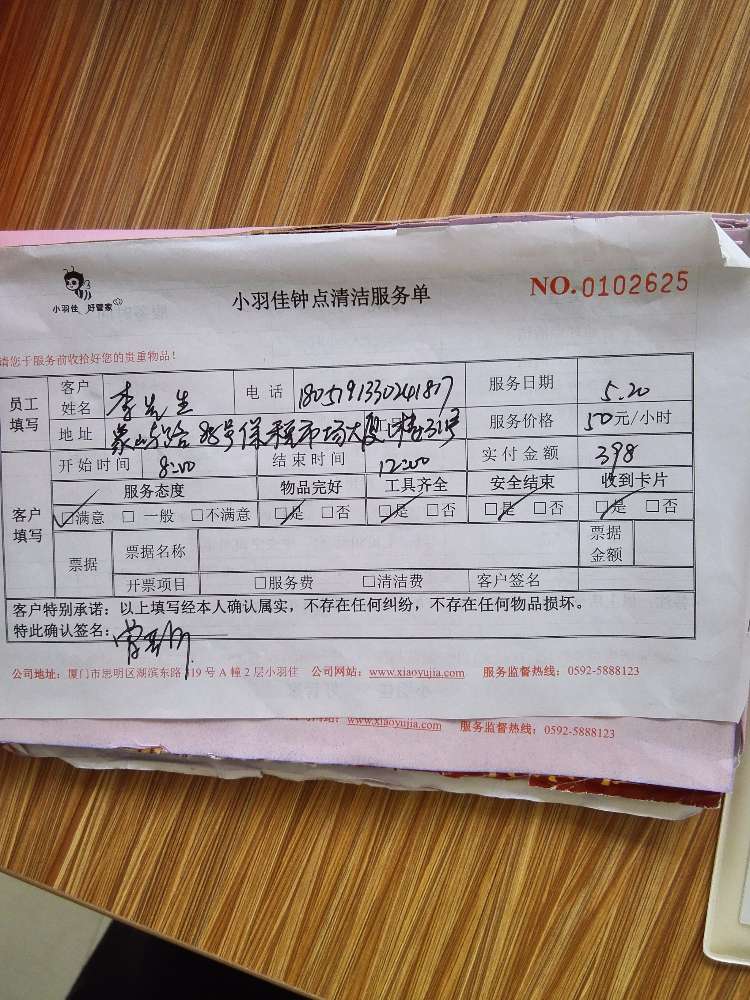 小羽佳 好管家
小羽佳钟点清洁服务单
NO.0102625
请您于服务前收拾好您的贵重物品！
员工填写
客户姓名 李先生 电话 服务日期 5.20
地址 象屿路88号保税市场大厦 服务价格 50元/小时
客户填写
开始时间 8:00 结束时间 12:00 实付金额 398
服务态度 物品完好 工具齐全 安全结束 收到卡片
☑满意 □一般 □不满意 ☑是 □否 ☑是 □否 ☑是 □否 ☑是 □否
票据 票据名称 票据金额
开票项目 □服务费 □清洁费 客户签名
客户特别承诺：以上填写经本人确认属实，不存在任何纠纷，不存在任何物品损坏。
特此确认签名：
公司地址：厦门市思明区湖滨东路319号A幢2层小羽佳 公司网站：www.xiaoyujia.com 服务监督热线：0592-5888123
www.xiaoyujia.com 服务监督热线：0592-5888123